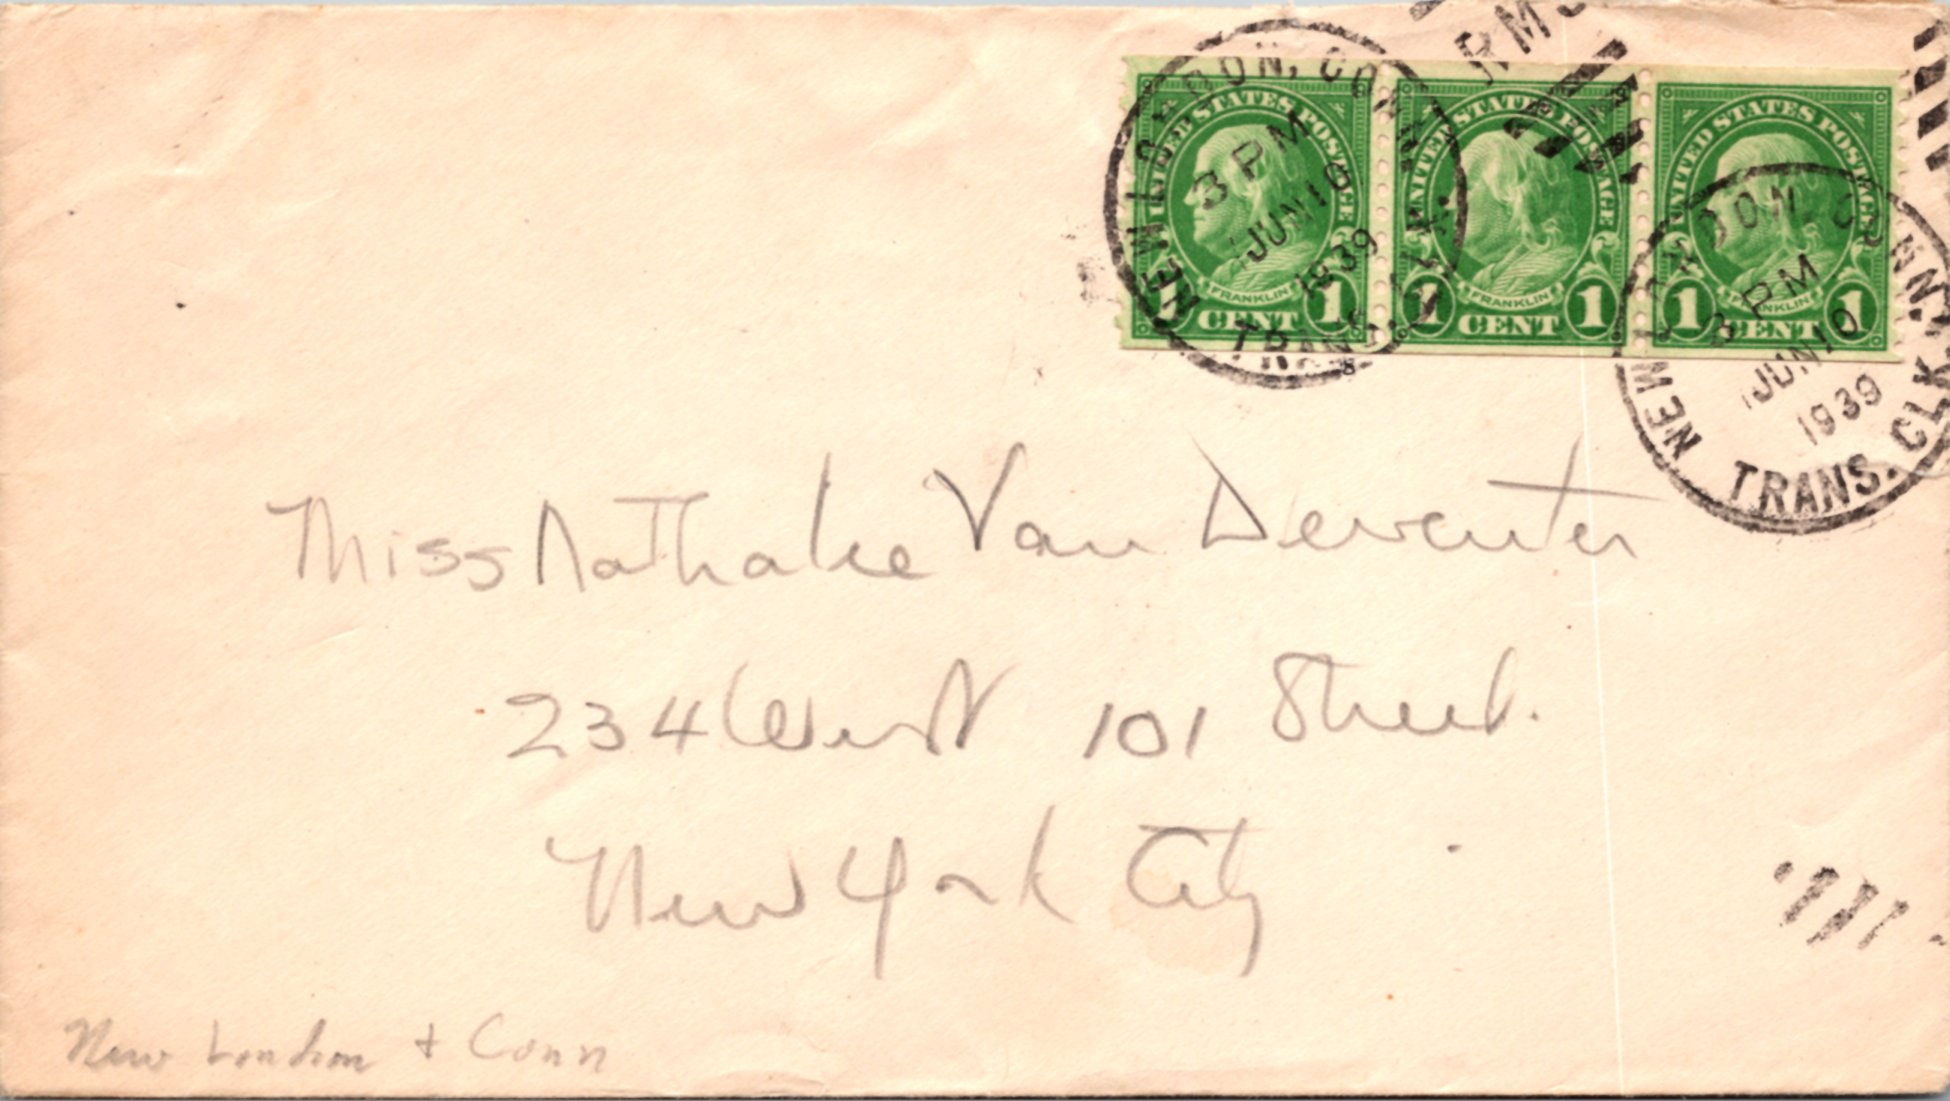 NEW LONDON, CONN.
3 PM
JUN 10
1939
TRANS. CLK.
RMS
UNITED STATES POSTAGE
FRANKLIN
1 CENT 1
UNITED STATES POSTAGE
FRANKLIN
1 CENT 1
UNITED STATES POSTAGE
FRANKLIN
1 CENT 1
NEW LONDON, CONN.
3 PM
JUN 10
1939
TRANS. CLK.
Miss Nathalie Van Deventer
234 West 101 Street.
New York City
New London + Conn